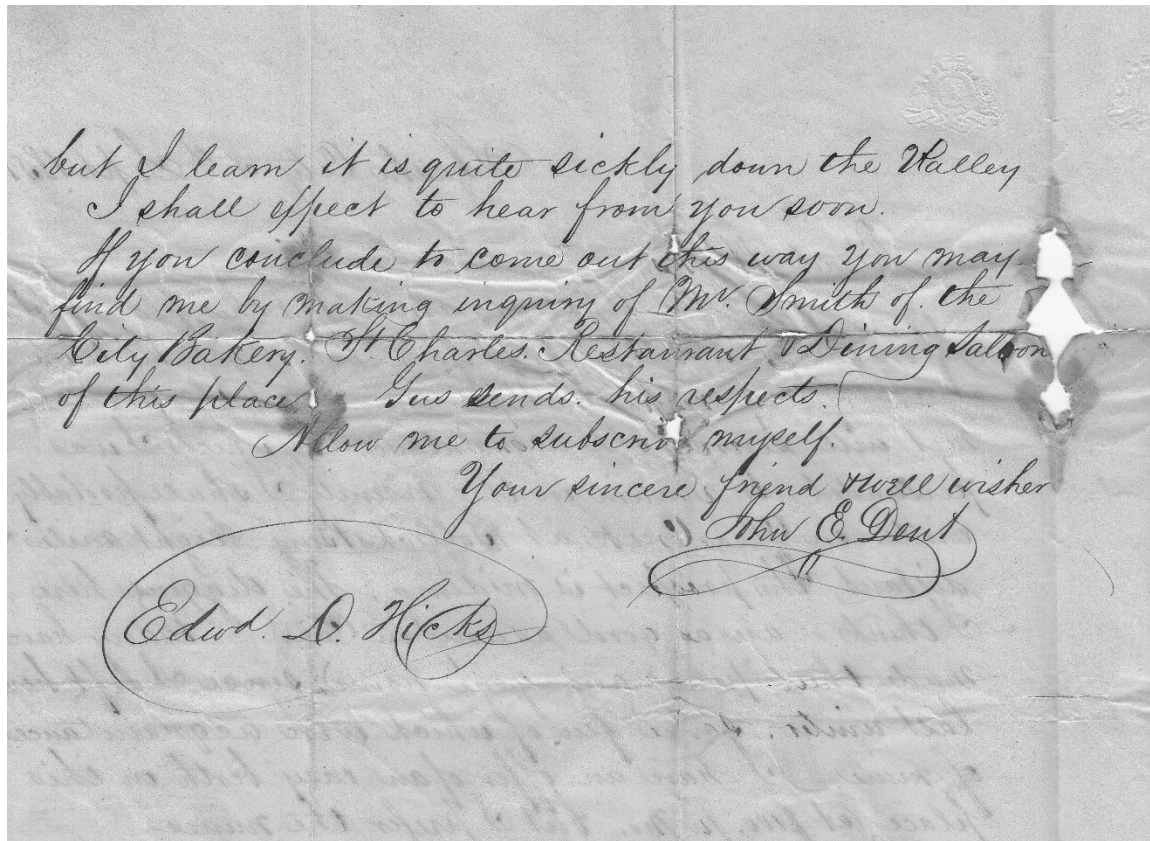 but I learn it is quite sickly down the Valley
I shall expect to hear from you soon.
If you conclude to come out this way you may
find me by making inquiry of Mr. Smith of the
City Bakery. St Charles. Restaurant & Dining Saloon
of this place. Gus sends. his respects.
Allow me to subscribe myself.
Your sincere friend & well wisher
John E. Dent
Edwd. D. Hicks